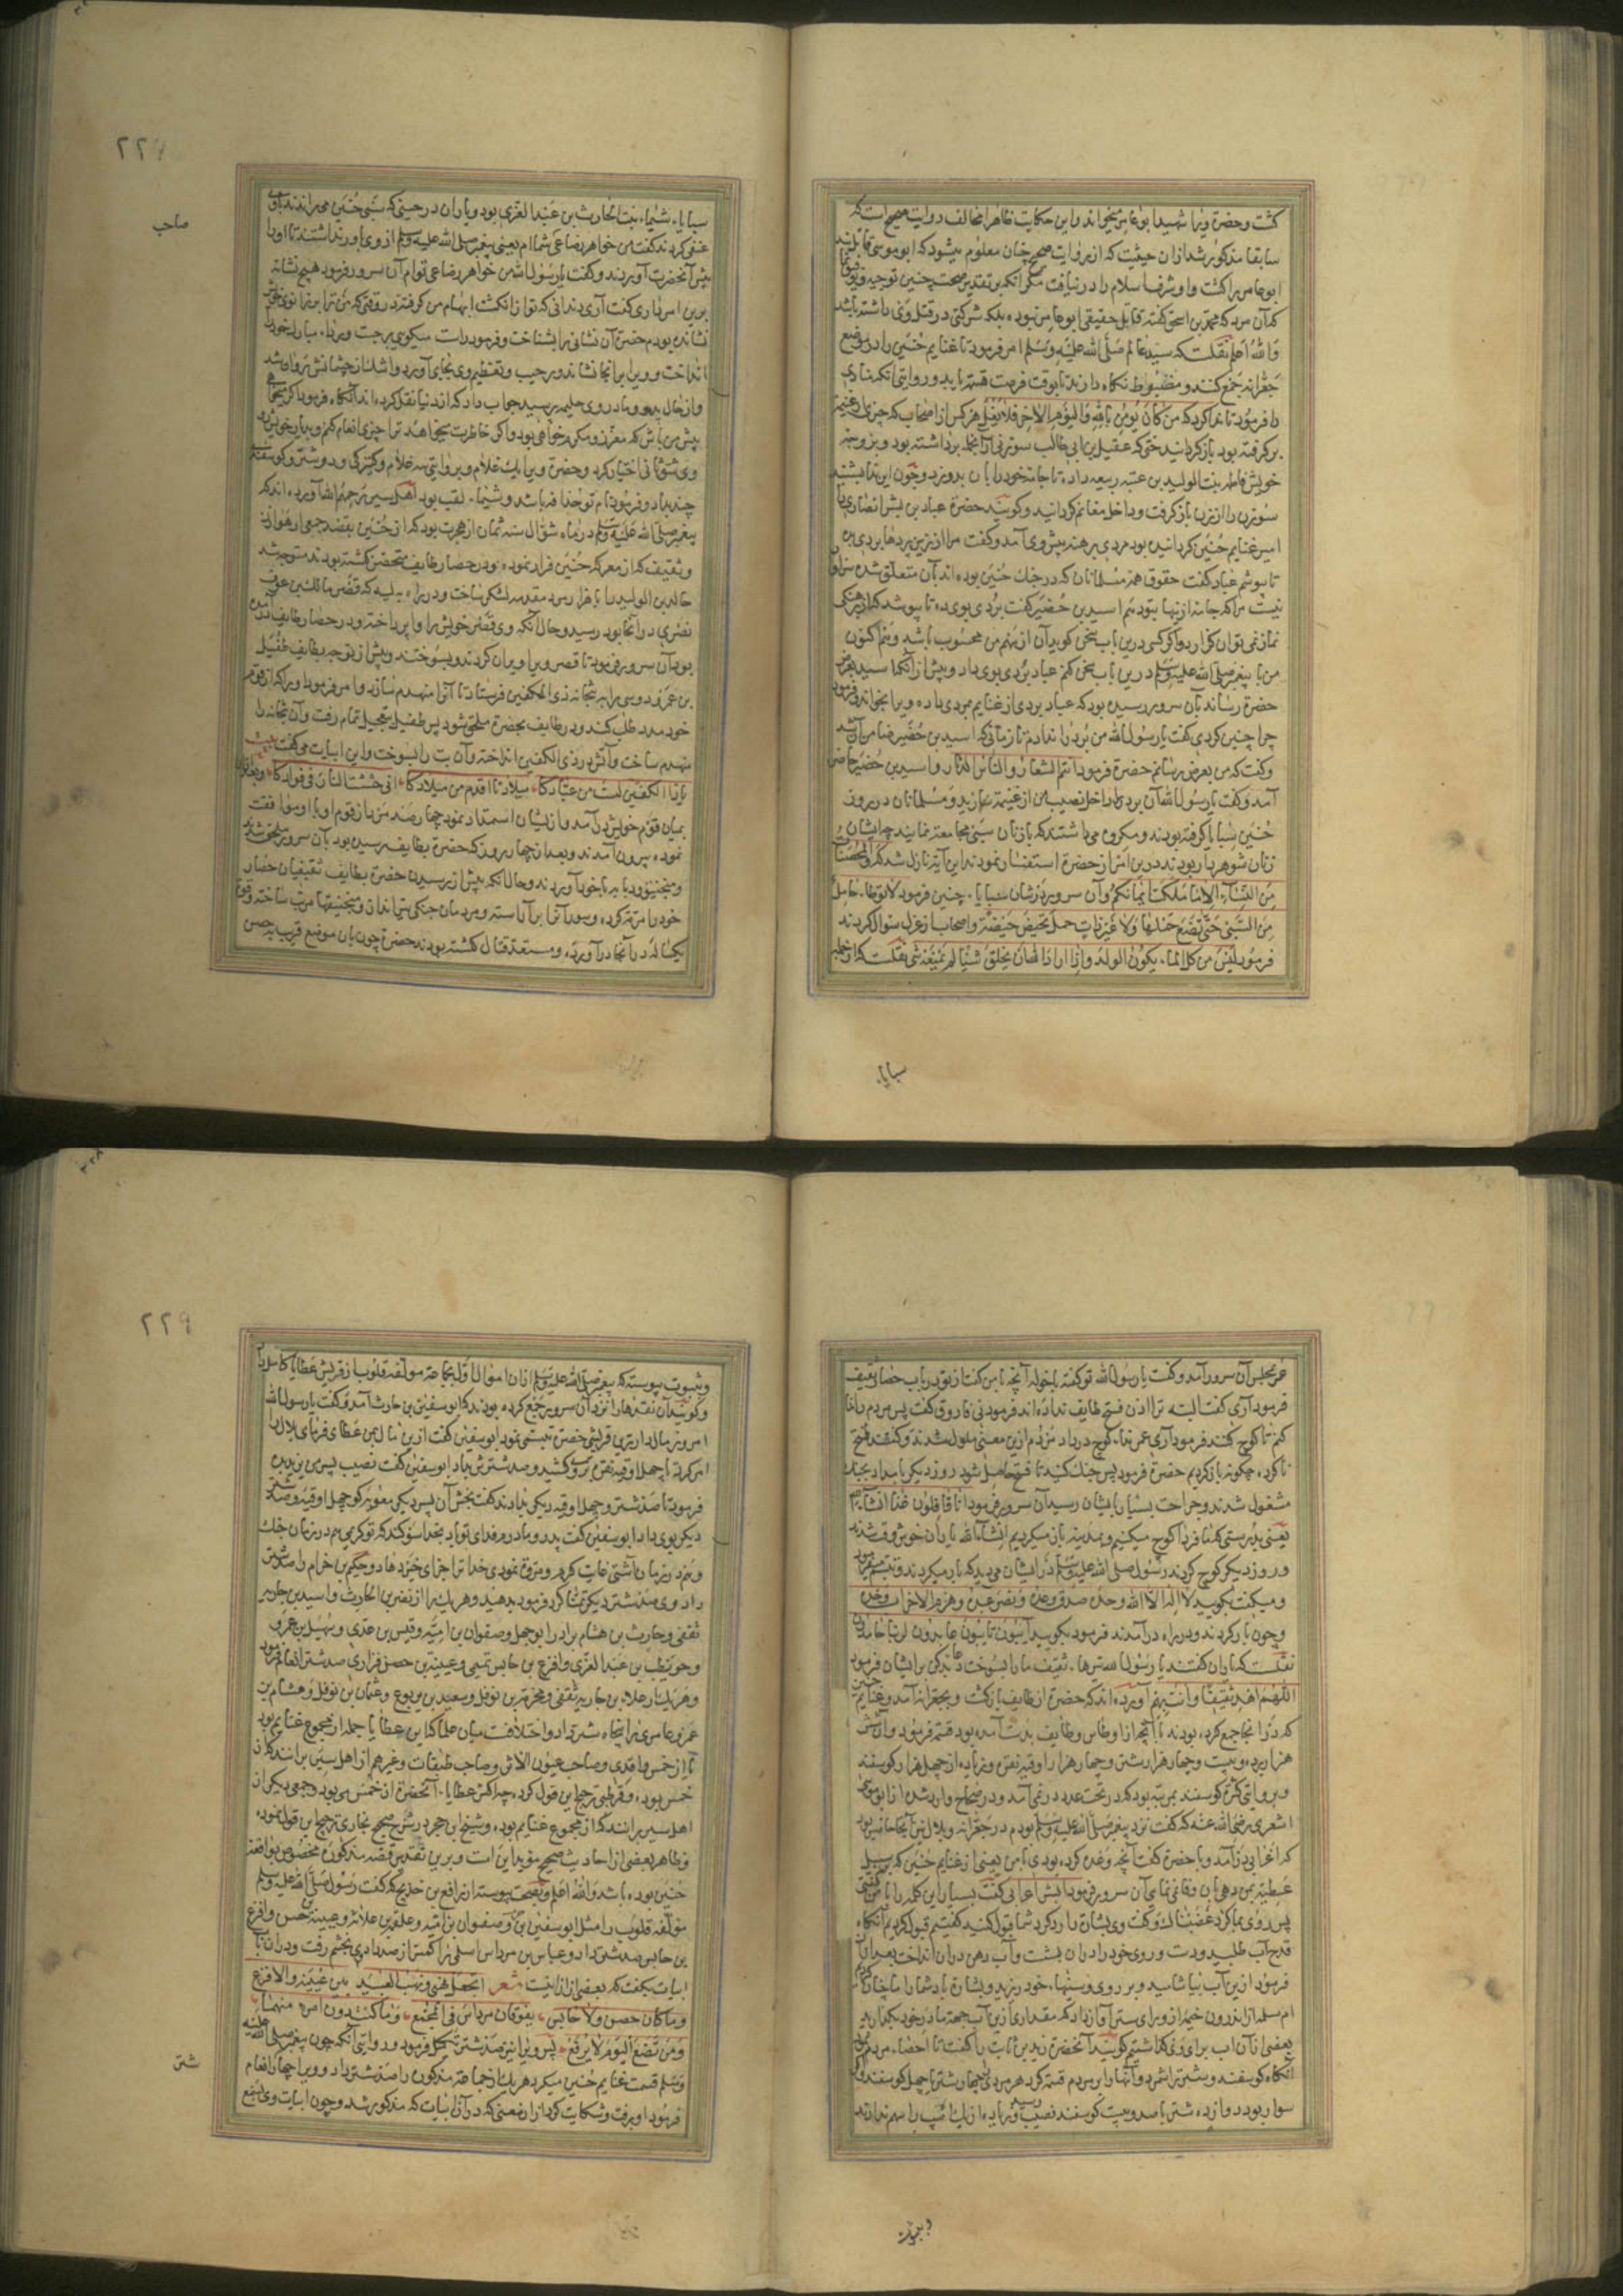 کشت و حضرت ویرا شهید ابوعامر میخواند و این حکایت ظاهرا مخالف روایت صحیح است که
سابقا مذکور شد از ان حیثیت که از روایت صحیح چنان معلوم میشود که ابوموسی قاتل
ابوعامر را کشت و او شرف اسلام را در نیافت مگر انکه بر تقدیر صحت چنین توجیه
که آن مرد که محمد بن اسحق گفته قاتل حقیقی ابوعامر نبوده بلکه شرکتی در قتل وی داشته باشد
والله اعلم نقلست که سید عالم صلی الله علیه وسلم امر فرمود تا غنایم حنین را در موضع
جعرانه جمع کنند و مضبوط نگاه دارند تا بوقت فرصت قسمت یابد و روایتی انکه منادی
را فرمود تا ندا کرد که من کان یؤمن بالله والیوم الاخر فلا یغل هر کس از اصحاب که چیزی از غنیمت
برگرفته بود باز گردانید حتی که عقیل بن ابی طالب سوزنی از آنجمله برداشته بود و بزوجه
خویش فاطمه بنت الولید بن عتبه ربیعه داده تا جامه خود را بان بدوزد و چون این ندا بشنید
سوزن را از زن باز گرفت و داخل مغانم گردانید و گویند حضرة عباد بن بشر انصاری را
امیر غنایم حنین گردانیده بود مردی برهنه پیش وی آمد و گفت مرا ازین بردها بردی بده
تا بپوشم عباد گفت حقوق همه مسلمانان که در جنک حنین بوده اند بآن متعلق شده سزاوار
نیست مرا که جامه ازینها بتو دهم اسید بن حضیر گفت بردی بوی ده تا بپوشد
نماز نمی توان گزارد و اگر کسی درین باب سخن گوید آن از سهم من محسوب باشد و منم اکنون
من با پیغمبر صلی الله علیه وسلم درین باب سخن کنم عباد بردی بوی داد و پیش از آنکه اسید بعرض
حضرة رساند بآن سرور رسیده بود که عباد بردی از غنایم بمردی داده ویرا بخواند و فرمود
چرا چنین کردی گفت یا رسول الله من برد را ندادم تا زمانی که اسید بن حضیر ضامن آن شد
و گفت که من بعرض رسانم حضرة فرمود انتم الشعار والناس الدثار و اسید بن حضیر حاضر
آمد و گفت یا رسول الله آن برد را داخل نصیب من از غنیمة سازید و مسلمانان در روز
حنین سبایا گرفته بودند و مکروه می داشتند که با زنان سبی مجامعه نمایند چه ایشان
زنان شوهردار بودند درین امر از حضرة استفسار نمودند این آیه نازل شد که والمحصنات
من النساء الا ما ملکت ایمانکم و آن سرور در شان سبایا چنین فرمود لا توطا حامل
من السبی حتی تضع حملها ولا غیر ذات حمل تحیض حیضة و اصحاب از عزل سوال کردند
فرمود لیس من کل الماء یکون الولد و اذا اراد الله ان یخلق شیئا لم یمنعه شی نقلست که از جمله
سبایا
۲۲۸
سبایا شیماء بنت الحارث بن عبد العزی بود و یاران در حینی که سبی حنین می راندند باوی
عنفی کردند گفت من خواهر رضاعی شما ام یعنی پیغمبر صلی الله علیه وسلم از وی باور نداشتند تا او را
پیش آنحضرت آوردند و گفت یا رسول الله من خواهر رضاعی توام آن سرور فرمود هیچ نشانه
برین امر داری گفت آری دندانی که تو از انگشت ابهام من گرفتهٔ در وقتی که من ترا بر زانوی خویش
نشانده بودم حضرة آن نشانی را بشناخت و فرمود راست میگویی برجست و ردا مبارک خود را
انداخت و ویرا بر انجا نشاند و ترحیب و تعظیم وی بجای آورد و اشک از چشمانش روان شد
و از حال پدر و مادر وی حلیمه پرسید جواب داد که از دنیا نقل کرده اند آنگاه فرمود اگر میخواهی
پیش من باش که معزز و مکرم خواهی بود و اگر خاطرت میخواهد ترا چیزی انعام کنم و بدیار خویش رو
وی شق ثانی اختیار کرد و حضرة ویرا یک غلام و بروایتی سه غلام و کنیزکی و دو شتر و گوسفند
چند بداد و فرمود نام تو خذافه باشد و شیما لقب بود اهل سیر رحمهم الله آورده اند که
پیغمبر صلی الله علیه وسلم در ماه شوال سنه ثمان از هجرت بود که از حنین بقصد جمعی از هوازن
و ثقیف که از معرکه حنین فرار نموده بودند و در حصار طایف متحصن گشته بودند متوجه شد
خالد بن الولید را با هزار مرد مقدمه لشکر ساخت و در راه به لیه که قصر مالک بن عوف
نصری در انجا بود رسید و حال آنکه وی قصر خویش را وا پرداخته و در حصار طایف درآمده
بود آن سرور فرمود تا قصر ویرا ویران کردند و بسوختند و پیش از توجه بطایف طفیل
بن عمرو دوسی را به بتخانه ذی الکفین فرستاد تا آنرا منهدم سازد و امر فرمود او را که از قوم
خود مدد طلب کند و در طایف بحضرة ملحق شود پس طفیل بتعجیل تمام رفت و آن بتخانه را
منهدم ساخت و آتش در ذی الکفین انداخت و آن بت را بسوخت و این ابیات می گفت بیت
یا ذا الکفین لست من عبادکا میلادنا اقدم من میلادکا انی حششت النار فی فوادکا و بعد ازان
بمیان قوم خویش درآمد و از ایشان استمداد نمود چهار صد مرد از قوم او با او موافقت
نموده بیرون آمدند و بعد از چهار روز که حضرة بطایف رسیده بود بآن سرور ملحق شدند
و منجنیق و دبابه با خود آوردند و حال آنکه پیش از رسیدن حضرة بطایف ثقیفیان حصار
خود را مرمت کرده و سور آنرا بر آراسته و مردمان جنکی بتیراندازان و منجنیقها مرتب ساخته و قوت
یکساله در آنجا درآورده و مستعد قتال گشته بودند حضرة چون بان موضع قریب بحصن
صاحب
عمر بمجلس آن سرور آمد و گفت یا رسول الله تو گفتهٔ با خوله آنچه با من گفت از تو در باب حصار ثقیف
فرمود آری گفت البته ترا اذن فتح طایف نداده اند فرمود نی فاروق گفت پس مردم را ندا
کنم تا کوچ کنند فرمود آری عمر ندای کوچ در داد مردم ازین معنی ملول شدند و گفتند فتح
ناکرده چگونه باز گردیم حضرة فرمود پس جنک کنید تا فتح حاصل شود روز دیگر بامداد بجنک
مشغول شدند و جراحت بسیار بایشان رسید آن سرور فرمود انا قافلون غدا ان شاء الله
یعنی بدرستی که ما فردا کوچ میکنیم و بمدینه باز میگردیم انشاء الله یاران خوش وقت شدند
و روز دیگر کوچ کردند رسول صلی الله علیه وسلم در ایشان می دید که بار میکردند و تبسم میفرمود
و میگفت بگویید لا اله الا الله وحده صدق وعده و نصر عبده و هزم الاحزاب وحده
و چون بار کردند و در راه درآمدند فرمود بگویید آیبون تایبون عابدون لربنا حامدون
نقلست که یاران گفتند یا رسول الله تیرهای ثقیف ما را بسوخت دعای بد کن بر ایشان فرمود
اللهم اهد ثقیفا وائت بهم آورده اند که حضرة از طایف بازگشت و بجعرانه آمد و غنایم حنین
که در انجا جمع کرده بودند با آنچه از اوطاس و طایف بدست آمده بود قسمه فرمود و آن شش
هزار برده و بیست و چهار هزار شتر و چهار هزار اوقیه نقره و زیاده از چهل هزار گوسفند
و بروایتی کثرة گوسفند بمرتبه بود که در تحت عدد در نمی آمد و در صحاح وارد شده از ابو موسی
اشعری رضی الله عنه که گفت نزد پیغمبر صلی الله علیه وسلم بودم در جعرانه و بلال نیز آنجا حاضر بود
که اعرابی درآمد و با حضرة گفت آنچه وعده کرده بودی با من یعنی از غنایم حنین که
عطیهٔ بمن دهی آن وفا نمی نمایی آن سرور فرمود ابشر اعرابی گفت بسیار این کلمه را با من گفتی
پس روی بما کرد غضبناک و گفت وی بشارة را رد کرد شما قبول کنید گفتیم قبول کردیم آنگاه
قدح آب طلبید و دست و روی خود را در ان بشست و آب دهن در ان انداخت بعد از آن
فرمود ازین آب بیاشامید و بر روی و سینهای خود بریزید و بشارة باد شما را ما چنان کردیم
ام سلمه از اندرون خیمه از ورای ستر آواز داد که مقداری ازین آب جهة مادر خود بگذارید
بعضی از آن آب برای وی گذاشتیم گویند آنحضرة زید بن ثابت را گفت تا احضار مردم کرد
آنگاه گوسفند و شتر را شمرد و آنها را بر مردم قسمت کرد هر مردی را چهار شتر یا چهل گوسفند و اگر
سوار بود دوازده شتر یا صد و بیست گوسفند نصیب رسید و زیاده از یک اسب را سهم ندادند
و ثبوت
۲۲۹
و ثبوت پیوسته که پیغمبر صلی الله علیه وسلم ازان اموال اول بجماعه مولفه قلوب از قریش عطایا کامل داد
و گویند آن نقدها را نزد آن سرور جمع کرده بودند که ابوسفین بن حارث آمد و گفت یا رسول الله
امروز مالدارترین قریشی حضرة تبسمی نمود ابوسفین گفت ازین مال بمن عطای فرمای بلال را
امر کرد تا چهل اوقیه نقره برو کشید و صد شترش بداد ابوسفین گفت نصیب پسر من یزید بده
فرمود تا صد شتر و چهل اوقیه دیگر بدادند گفت بخش آن پسر دیگرم معویه کو چهل اوقیه و صد شتر
دیگر بوی داد ابوسفین گفت پدر و مادرم فدای تو باد بخدا سوگند که تو کریمی هم در زمان جنک
و هم در زمان آشتی غایت کرم و مروت نمودی خدا ترا جزای خیر دهاد و حکیم بن حزام را صد شتر
داد وی صد شتر دیگر تمنا کرد فرمود بدهید و هر یک را از نضر بن الحارث و اسید بن جاریه
ثقفی و حارث بن هشام برادر ابوجهل و صفوان بن امیه و قیس بن عدی و سهیل بن عمرو
و حویطب بن عبد العزی و اقرع بن حابس تمیمی و عیینه بن حصن فزاری صد شتر انعام فرمود
و هر یک را از علاء بن جاریه ثقفی و مخرمه بن نوفل و سعید بن یربوع و عثمان بن نوفل و هشام بن
عمرو عامری را پنجاه شتر داد و اختلافست میان علما که این عطایا جمله از مجموع غنایم بود
یا از خمس واقدی و صاحب عیون الاثر و صاحب طبقات و غیرهم از اهل سیر برانند که از
خمس بود و قرطبی ترجیح این قول کرده چه اکثر عطایای آنحضرة از خمس می بود و جمعی دیگر از
اهل سیر برانند که از مجموع غنایم بوده و شیخ ابن حجر در شرح صحیح بخاری ترجیح این قول نموده
و ظاهر بعضی از احادیث صحیح مؤید این است و برین تقدیر قصه مذکوره مخصوص بواقعهٔ
حنین بوده باشد والله اعلم و بصحت پیوسته از رافع بن خدیج که گفت رسول صلی الله علیه وسلم
مولفه قلوب را مثل ابوسفین بن حرب و صفوان بن امیه و علقمه بن علاثه و عیینه بن حصن و اقرع
بن حابس صد شتر داد و عباس بن مرداس اسلمی را کمتر از صد داد وی بخشم رفت و دران باب
ابیات بگفت که بعضی ازان اینست شعر اتجعل نهبی و نهب العبید بین عیینه والاقرع
وما کان حصن ولا حابس یفوقان مرداس فی المجمع وما کنت دون امرء منهما
ومن تضع الیوم لا یرفع پس ویرا نیز صد شتر تکمیل فرمود و در روایتی آنکه چون پیغمبر صلی الله علیه
وسلم قسمت غنایم حنین میکرد هر یک از جماعه مذکور را صد شتر داد و ویرا چهار انعام
فرمود او برفت و شکایت کرد ازان معنی که در آن ابیات که مذکور شد و چون ابیات وی بسمع
شتر